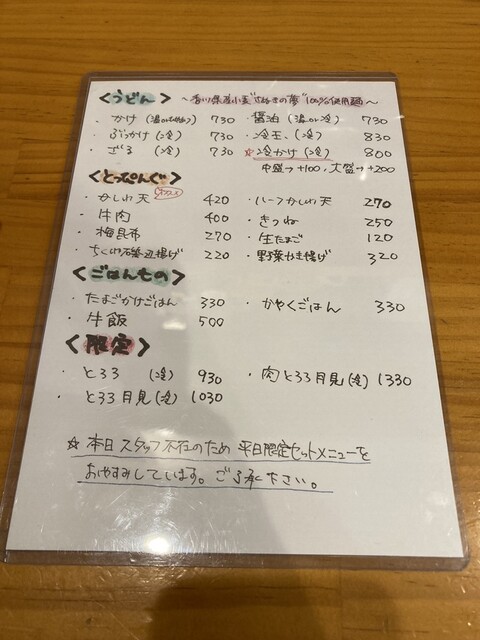 ＜うどん＞ 〜香川県産小麦"さぬきの夢"100%使用麺〜
・かけ (温or冷) 730 ・醤油 (温or冷) 730
・ぶっかけ (冷) 730 ・冷玉 (冷) 830
・ざる (冷) 730 ☆冷かけ (冷) 800
中盛→+100、大盛→+200
＜とっぴんぐ＞
・かしわ天 420 ・ハーフかしわ天 270
・牛肉 400 ・きつね 250
・梅昆布 270 ・生たまご 120
・ちくわ石蓴辺揚げ 220 ・野菜かき揚げ 320
＜ごはんもの＞
・たまごかけごはん 330 ・かやくごはん 330
・牛飯 500
＜限定＞
・とろろ (冷) 930 ・肉とろろ月見(冷) 1330
・とろろ月見(冷) 1030
☆本日スタッフ不在のため 平日限定セットメニューを
おやすみしています。ご了承下さい。